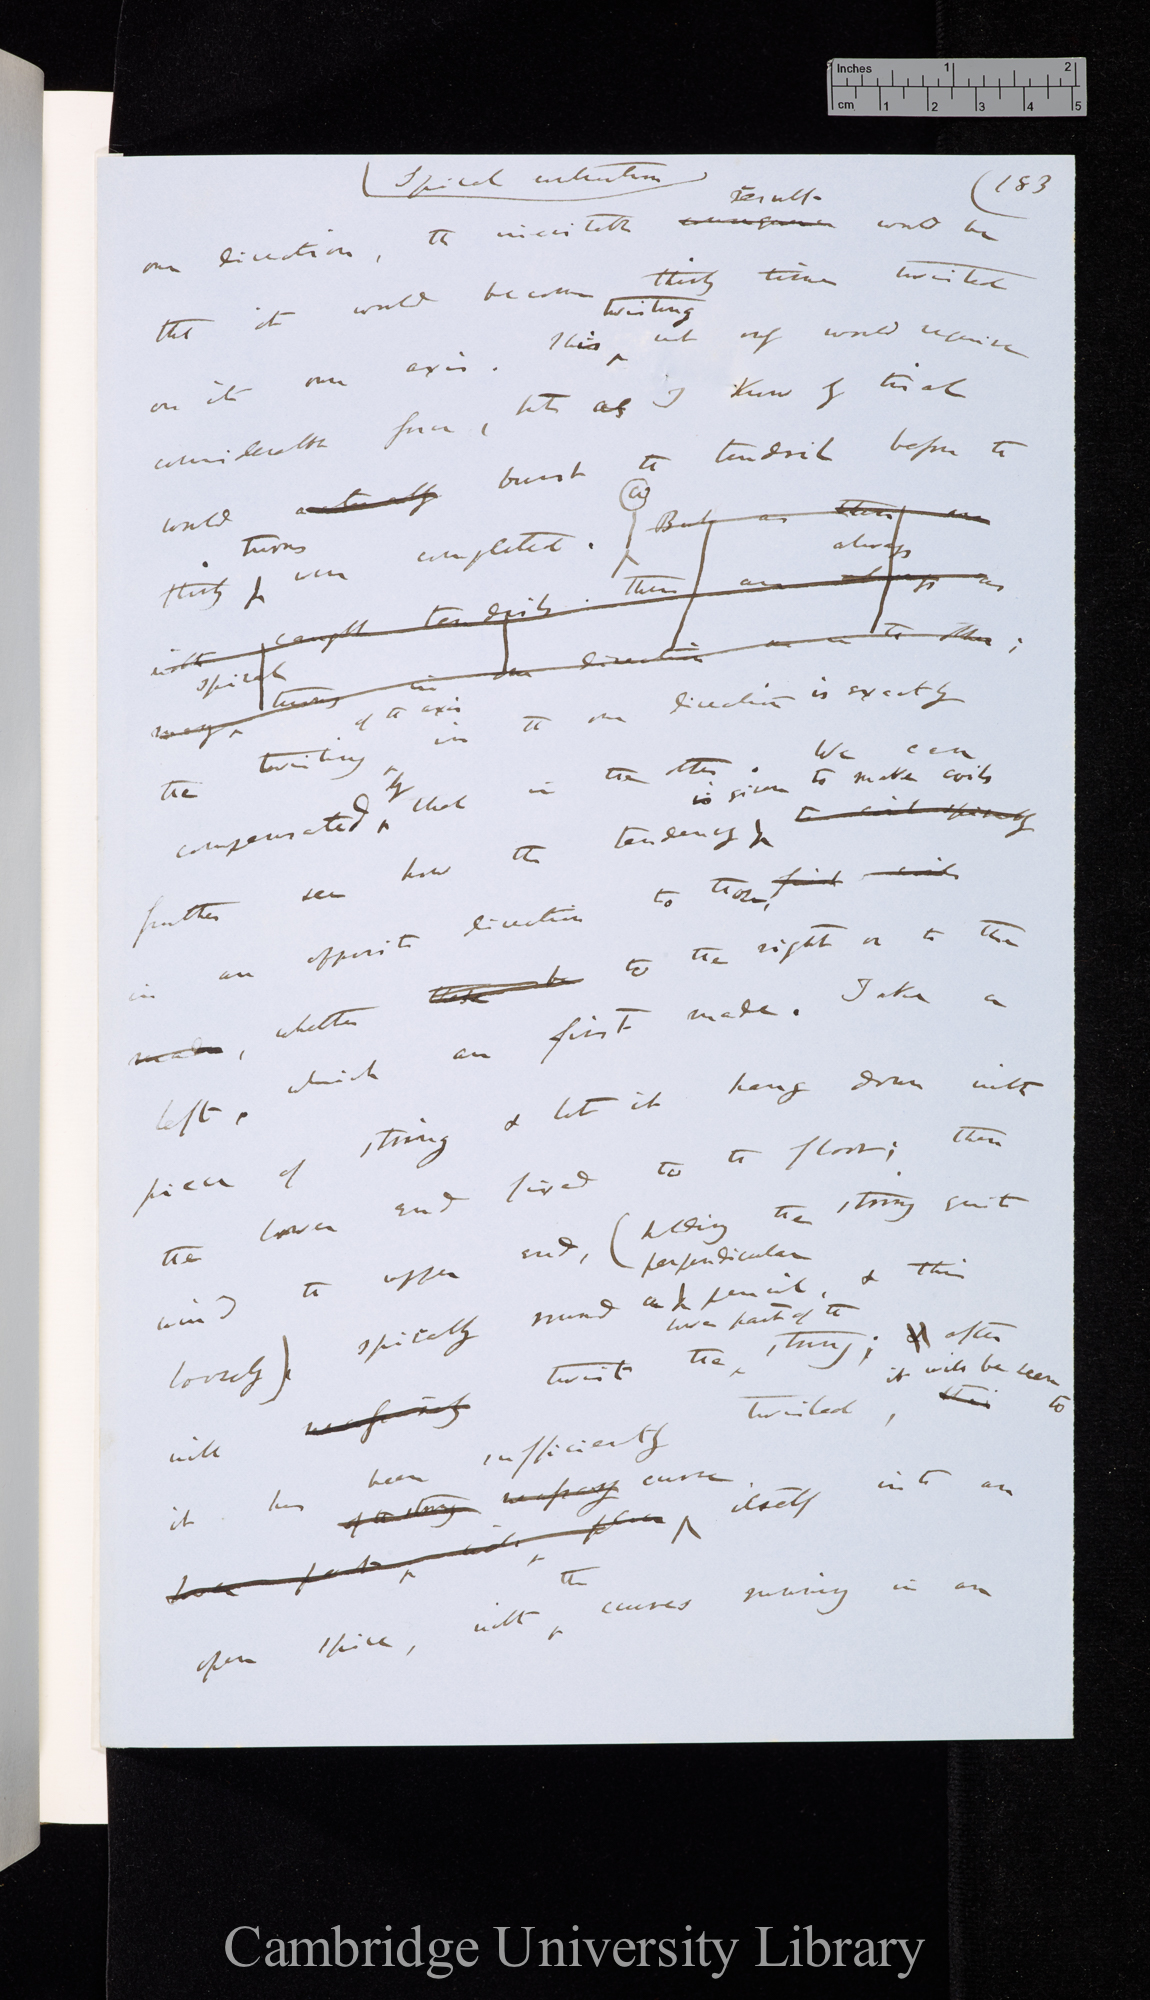 Inches 1 2
cm 1 2 3 4 5
(Spiral contraction
(183
result
one direction, the inevitable would be
that it would become thirty times twisted
twisting
on its own axis. This not only would require
considerable force, but as I know by trial
would actually burst the tendril before the
turns
thirty were completed.
(a)
But as there are
always
with caught tendrils. there are always as
spiral
many turns in one direction as in the other;
of the axis
the twisting in the one direction is exactly
by
compensated that in the other. We can
is given to make coils
further see how the tendency to coil spirally
in an opposite direction to those, first coils
made, whether to the right or to the
left, which are first made. Take a
piece of string & let it hang down with
the lower end fixed to the floor; then
wind the upper end, (holding the string quite
perpendicular
loosely) spirally round a pencil, & this
lower part of the
will twist the string; & after
it will be seen to
it has been sufficiently twisted, this
of the string curve
lower part itself into an
the
open spire, with curves running in an
Cambridge University Library